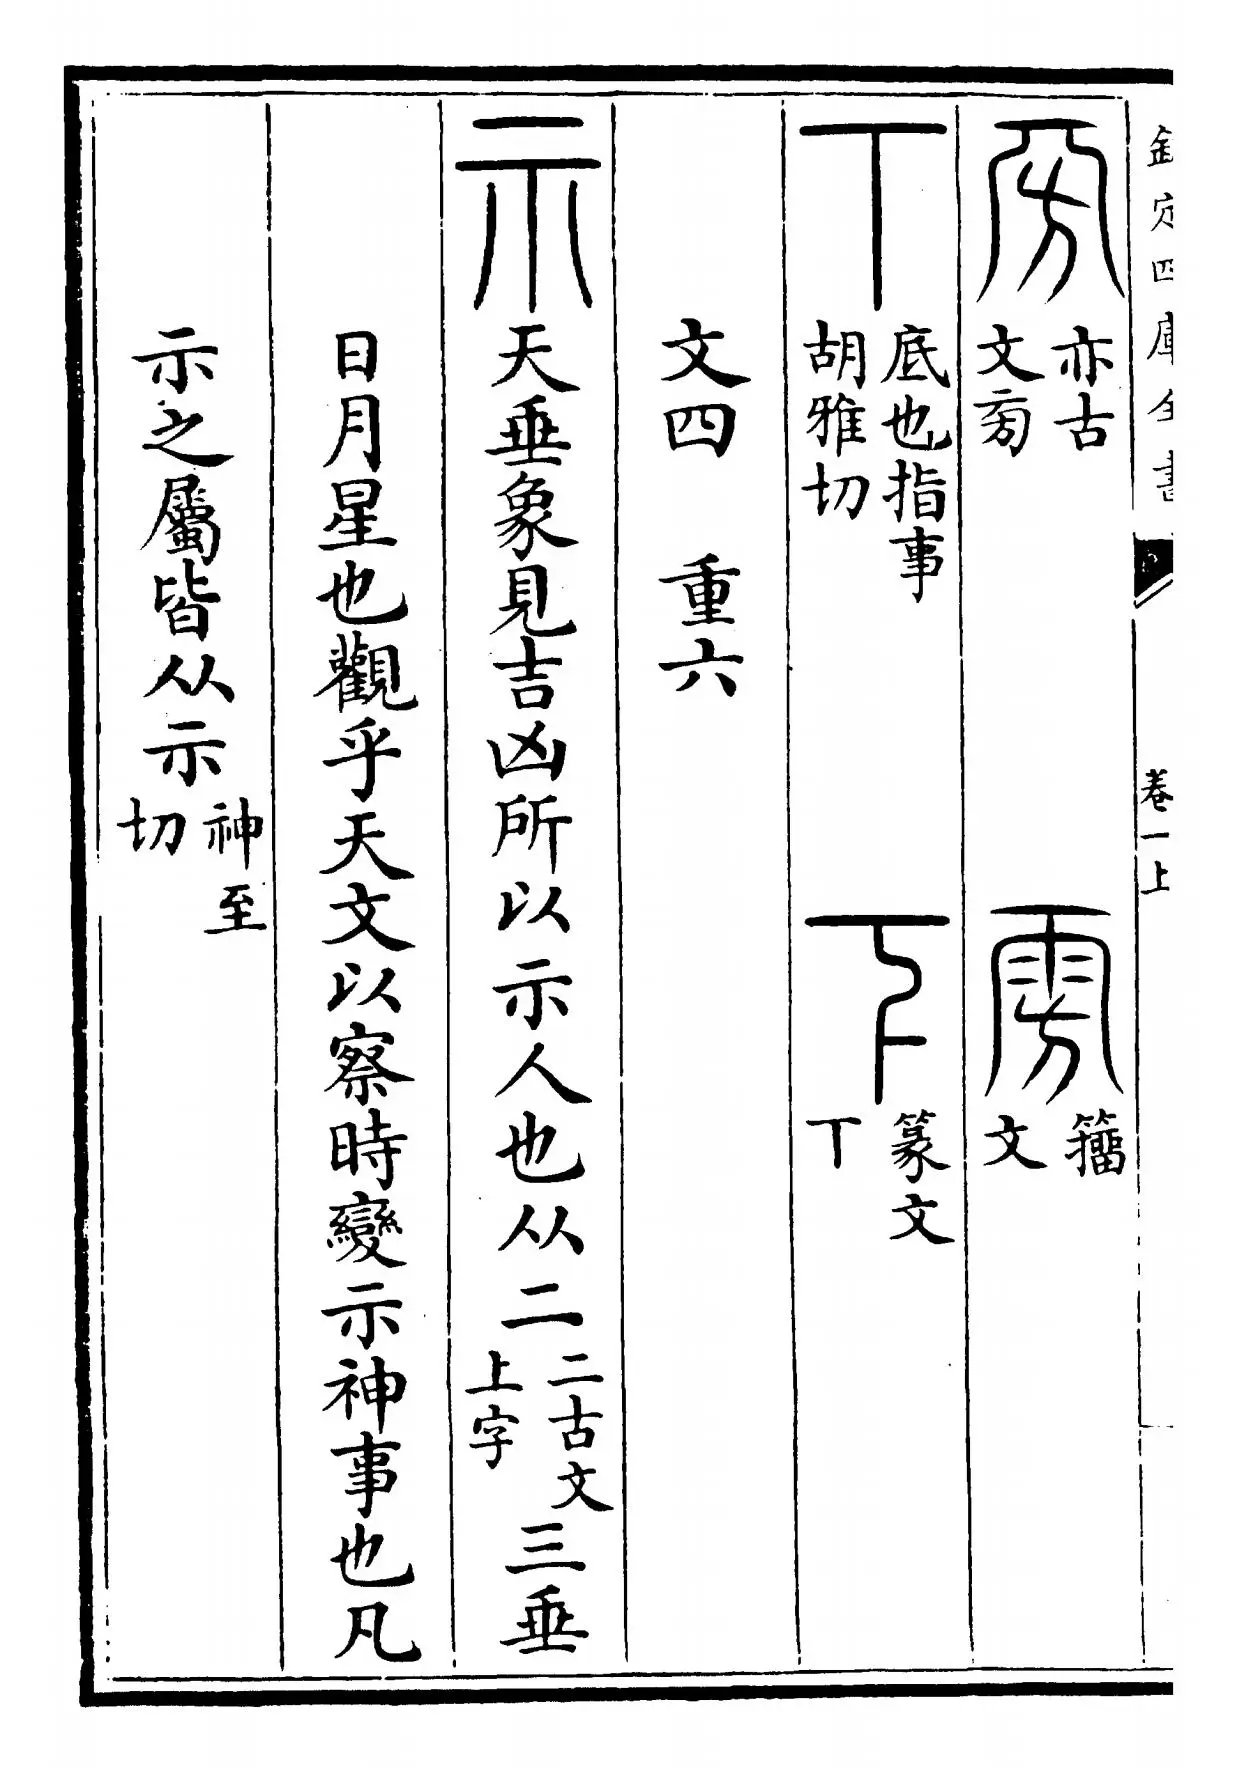 欽定四庫全書
卷一上
亦古文㫄
籀文
丅 底也指事胡雅切
篆文丅
文四 重六
示 天垂象見吉凶所以示人也从二 二古文上字 三垂
日月星也觀乎天文以察時變示神事也凡
示之屬皆从示 神至切